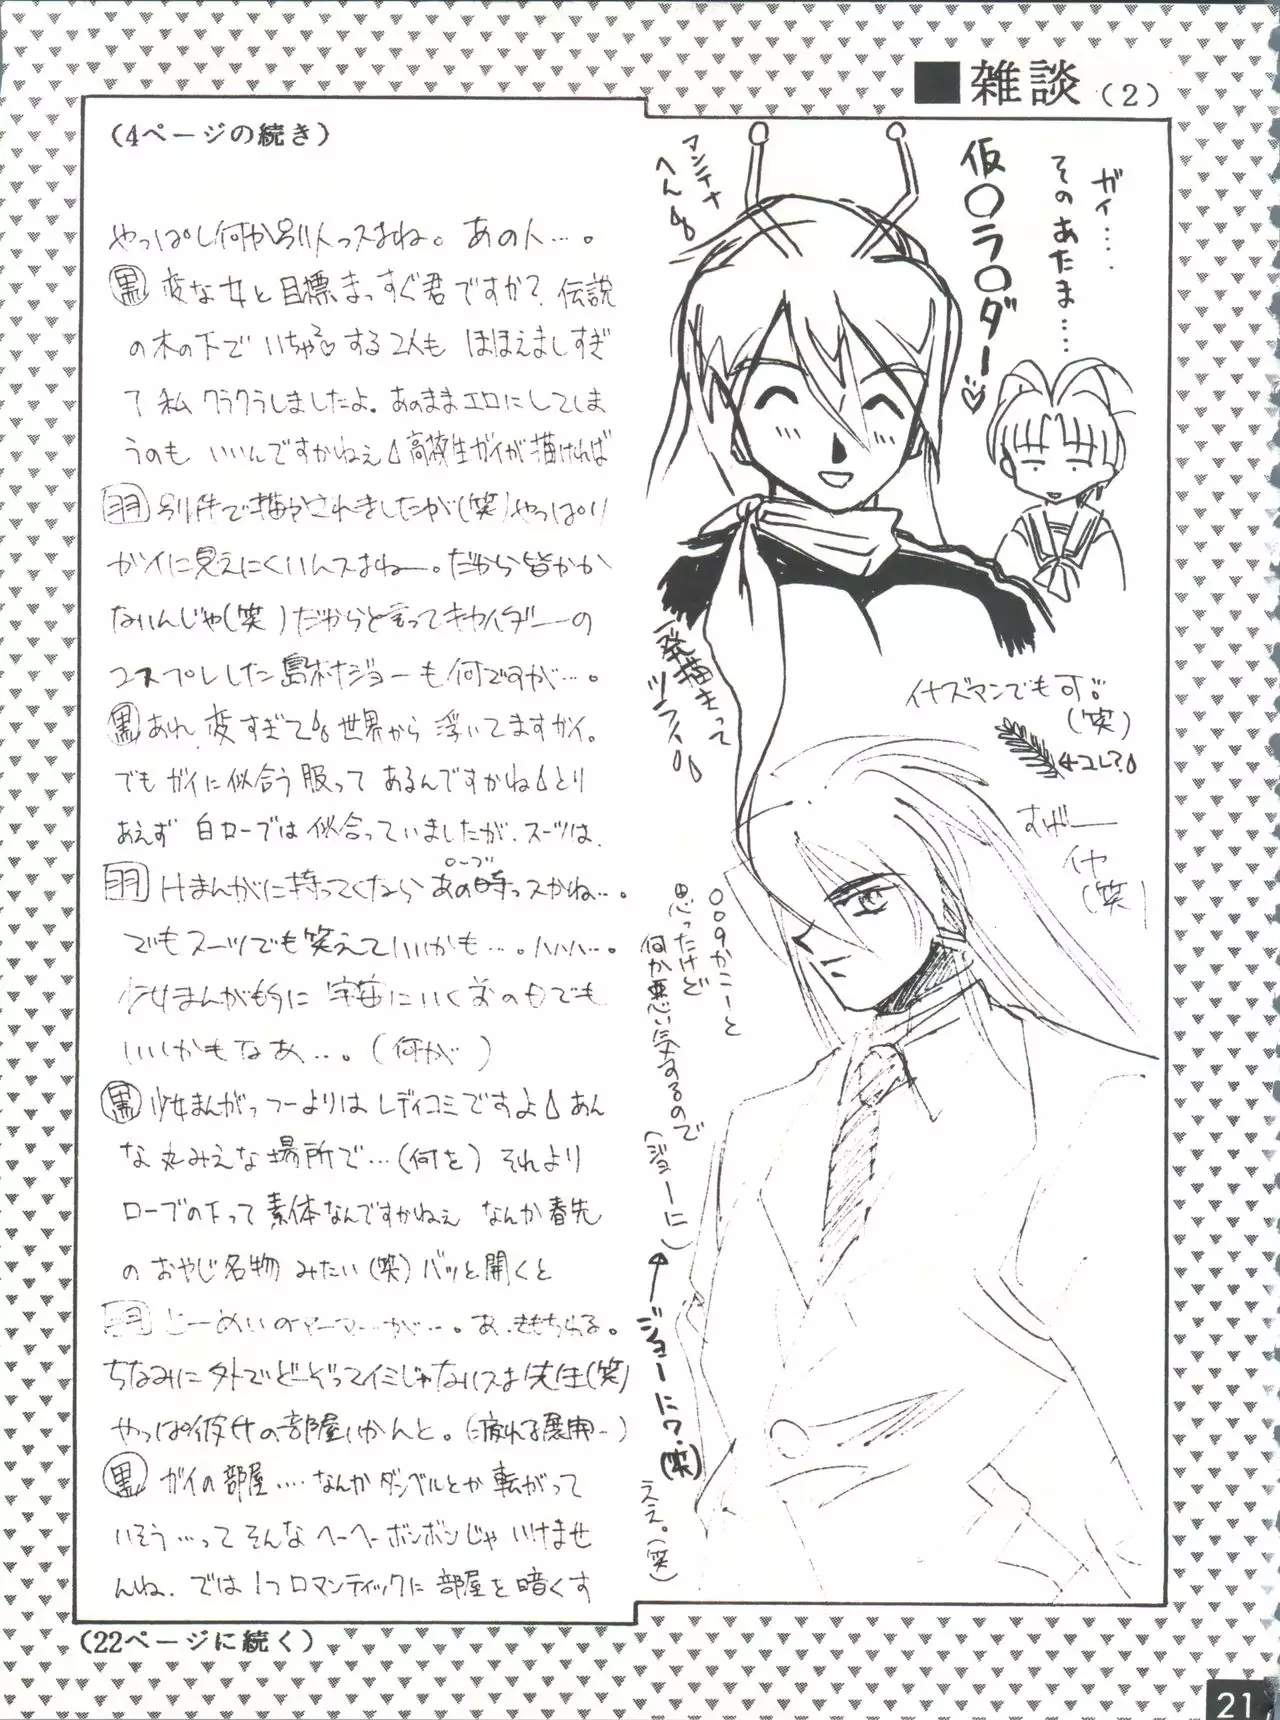 ■雑談（2）
（4ページの続き）
やっぱし何か別人っスよね。あの人…。
黒 変な女と目標まっすぐ君ですか？伝説
の木の下で いちゃ2♡する2人も ほほえましすぎ
て 私 クラクラしましたよ。あのままエロにしてしま
うのも いいんですかねぇ 高校生ガイが描ければ
羽 別件で描かされましたが(笑)やっぱり
ガイに見えにくいんスよねー。だから皆かか
ないんじゃ(笑)だからと言ってキカイダーの
コスプレした島村ジョーも何ですが…。
黒 あれ、変すぎて 世界から 浮いてますガイ。
でもガイに似合う服って あるんですかね とり
あえず 白ローブは似合っていましたが、スーツは、
羽 Hまんがに持ってくなら あの時っスかね…。
ローブ
でもスーツでも笑えていいかも…。ハハハ…。
少女まんが的に 宇宙にいく前の日でも
いいかもなあ…。(何が)
黒 少女まんがっつーよりは レディコミですよ あん
な丸みえな場所で…(何を) それより
ローブの下って 素体なんですかねぇ なんか春先
の おやじ名物 みたい(笑) バッと開くと
羽 とーめいのアーマーが…。あ、きもちわる。
ちなみに外でどーぞってイミじゃないスよ先生(笑)
やっぱ彼女の部屋いかんと。(疲れる展開…)
黒 ガイの部屋…‥なんかダンベルとか 転がって
いそう…って そんな ヘーヘーボンボンじゃ いけませ
んね。では1つロマンティックに 部屋を暗くす
（22ページに続く）
ガイ‥‥
そのあたま……
仮〇ラ〇ダー♡
アンテナ
へん
一発描きって
ツライ
イナズマンでも可
(笑)
コレ?
すげー
イヤ
(笑)
009かこーと
思ったけど
何か悪い気するので
(ジョーに)
ジョーに?(笑)
ええ。(笑)
21